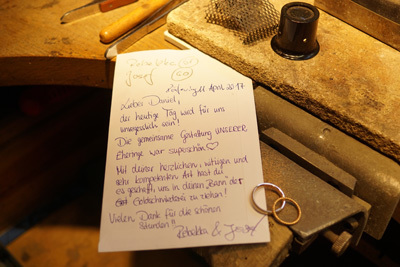 Rebekka
Josef
11. April 2017
Lieber Daniel,
der heutige Tag wird für uns
unvergesslich sein!
Die gemeinsame Gestaltung UNSERER
Eheringe war superschön ♡
Mit deiner herzlichen, witzigen und
sehr kompetenten Art hast du
es geschafft, uns in deinen „Bann" der
Goldschmiederei zu ziehen!
Vielen Dank für die schönen
Stunden!!
Rebekka & Josef